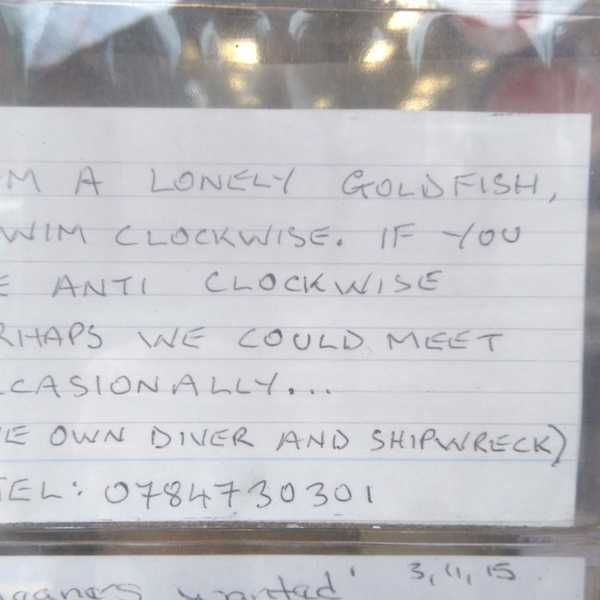 M A LONELY GOLDFISH,
WIM CLOCKWISE. IF YOU
E ANTI CLOCKWISE
RHAPS WE COULD MEET
CASIONALLY...
E OWN DIVER AND SHIPWRECK)
TEL: 0784730301
wanted' 3,11,15